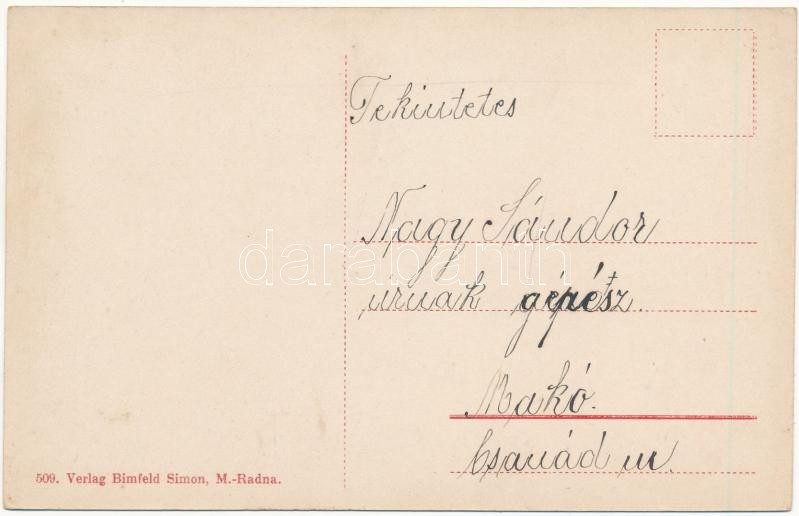 Tekintetes
Nagy Sándor
úrnak gépész.
Makó.
Csanád m.
509. Verlag Bimfeld Simon, M.-Radna.
darabanth